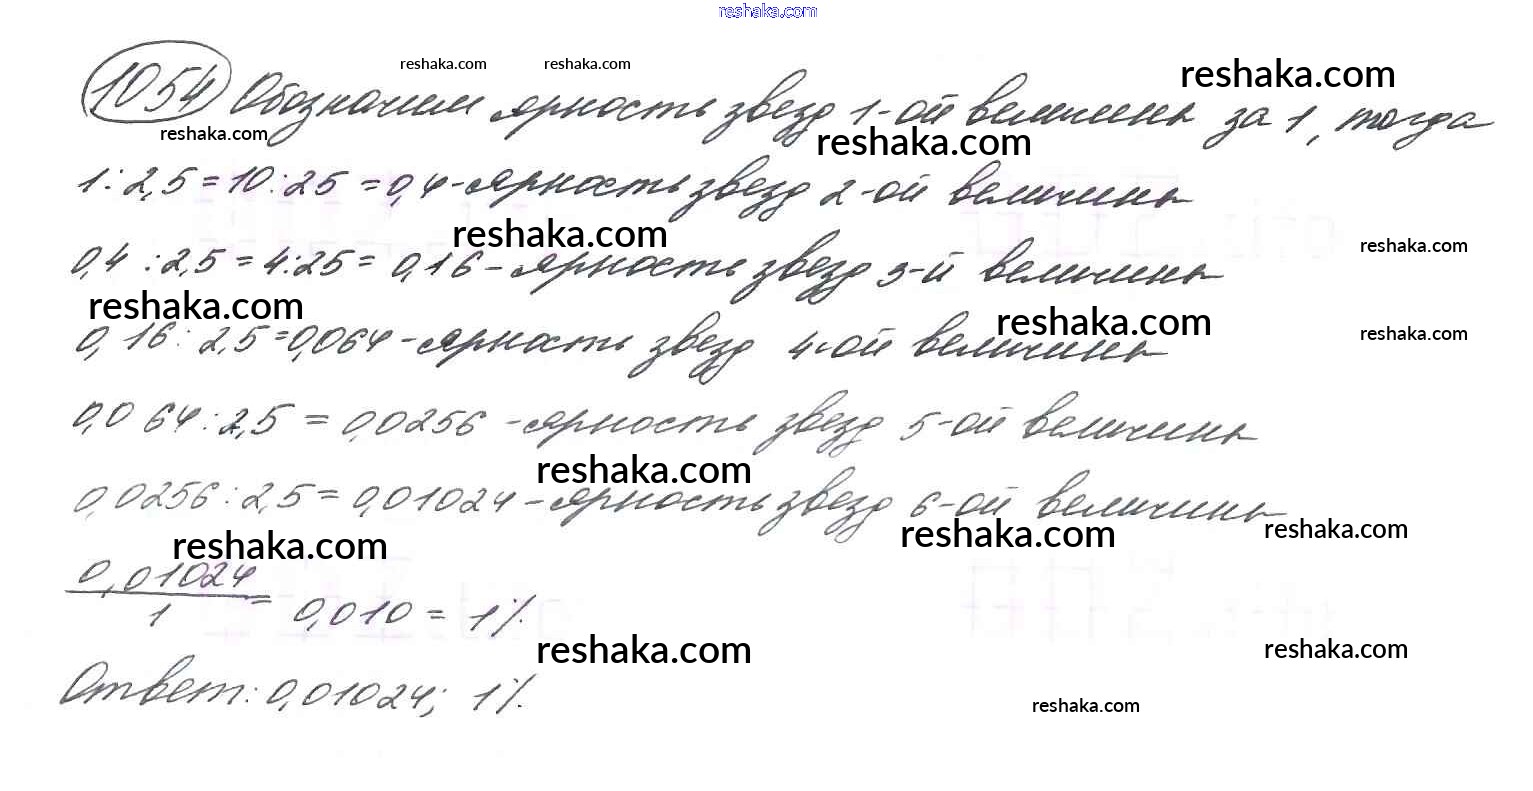 reshaka.com
reshaka.com reshaka.com reshaka.com
1054 Обозначим яркость звезд 1-ой величины за 1, тогда
reshaka.com reshaka.com
1:2,5=10:25=0,4-яркость звезд 2-ой величины
reshaka.com reshaka.com
0,4:2,5=4:25=0,16-яркость звезд 3-й величины
reshaka.com reshaka.com reshaka.com
0,16:2,5=0,064-яркость звезд 4-ой величины
0,064:2,5=0,0256-яркость звезд 5-ой величины
reshaka.com
0,0256:2,5=0,01024-яркость звезд 6-ой величины
reshaka.com reshaka.com reshaka.com
0,01024/1=0,010=1%
reshaka.com reshaka.com
Ответ: 0,01024; 1%.
reshaka.com